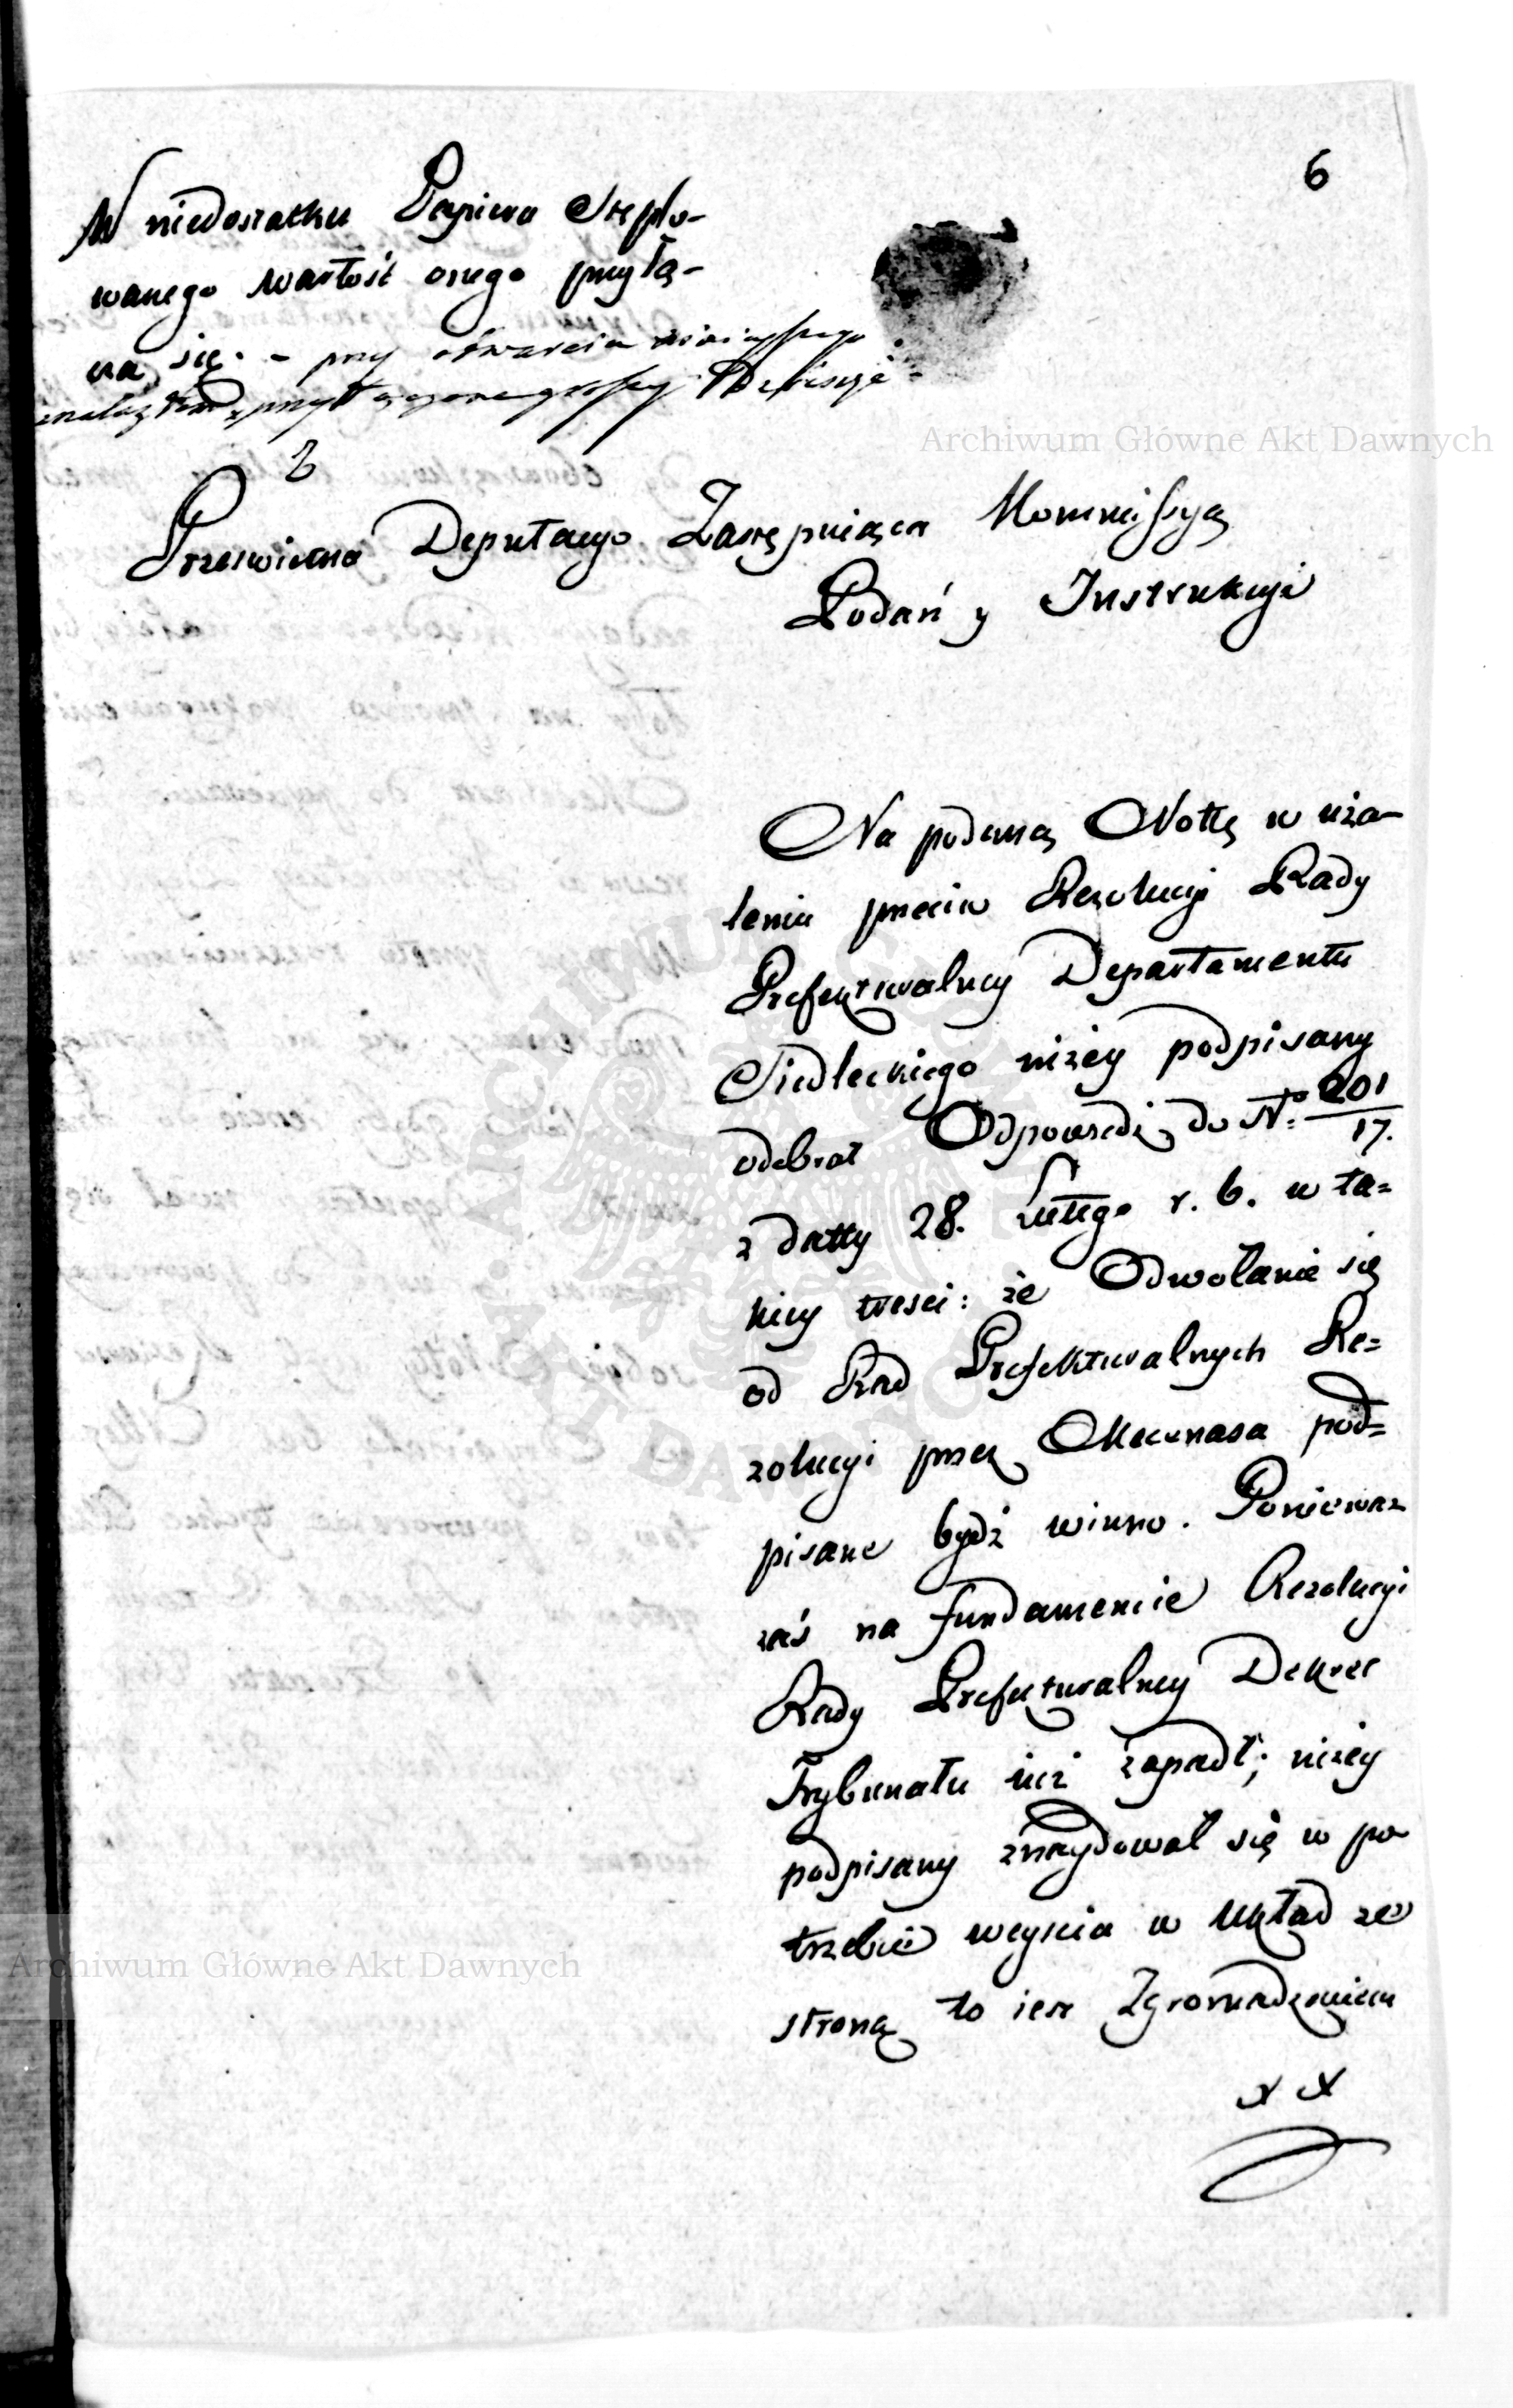 6
W niedostatku Papieru Stęplo-
wanego wartość onego przyłą-
cza się. - przy otwarciu ninieyszego
znalazłem przyłączone groszy
Prześwietna Deputacyo Zastępuiąca Kommissyą
Podań y Instrukcyi
Archiwum Główne Akt Dawnych
Na podaną Nottę w uża-
leniu przeciw Rezolucyi Rady
Prefekturalney Departamentu
Siedleckiego niżey podpisany
odebrał Odpowiedź do N: 201/17.
z datty 28. Lutego r. b. w ta=
kiey treści: że Odwołanie się
od Rad Prefekturalnych Re=
zolucyi przez Mecenasa pod=
pisane bydź winno. Ponieważ
zaś na fundamencie Rezolucyi
Rady Prefekturalney Dekret
Trybunału iuż zapadł; niżey
podpisany znaydował się w po
trzebie weyścia w Układ ze
stroną to iest Zgromadzeniem
Archiwum Główne Akt Dawnych